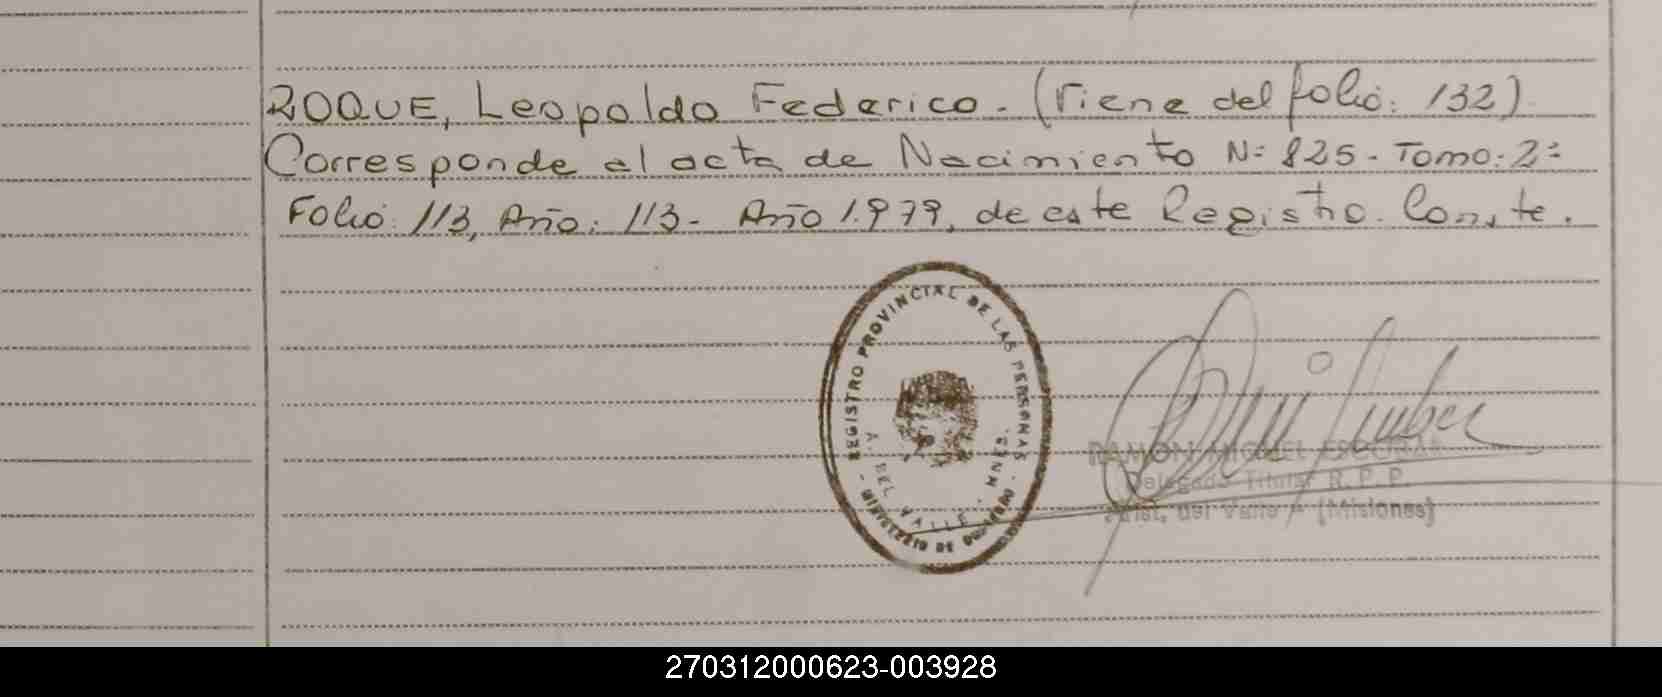 ROQUE, Leopoldo Federico. (Viene del folio: 132)
Corresponde al acta de Nacimiento Nº 825 - Tomo: 2º
Folio: 113, Año: 113 - Año 1.979, de este Registro. Conste.
REGISTRO PROVINCIAL DE LAS PERSONAS
A. DEL VALLE - MNES.
MINISTERIO DE GOBIERNO
RAMON MIGUEL ESCOBAR
Delegado Titular R. P. P.
Arist. del Valle - (Misiones)
270312000623-003928